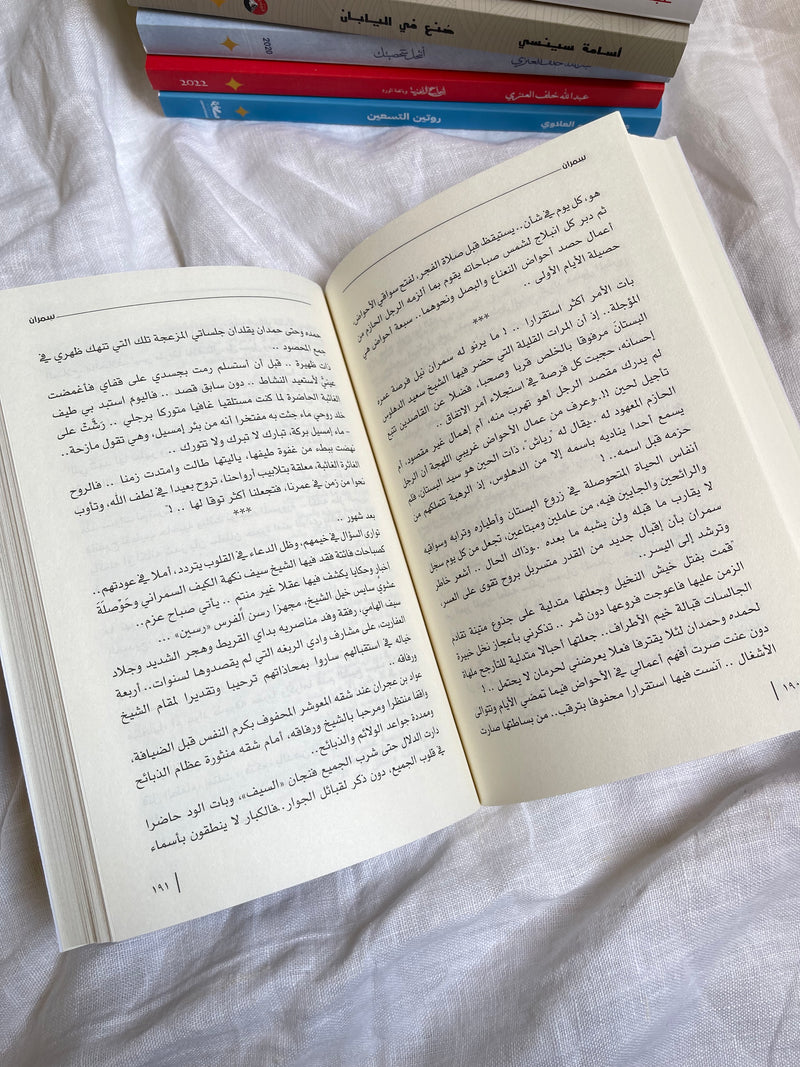 صُنع في اليابان
أسامة سينسي
2020
عبدالله خلف العنزي
2022
عبدالله خلف العنزي
روتين التسعين
العلاوي
سمران
هو، كل يوم في شأن.. يستيقظ قبل صلاة الفجر، لفتح سواقي الأحواض
ثم دبر كل انبلاج لشمس صباحاته يقوم بما ألزمه الرجل الحازم من
أعمال حصد أحواض النعناع والبصل ونحوهما.. سبعة أحواض هي
حصيلة الأيام الأولى ..
***
بات الأمر أكثر استقرارا .. ! ما يرنو له سمران نيل فرصة عمره
المؤجلة.. إذ أن المرات القليلة التي حضر فيها الشيخ سعيد الدهلوس
البستان مرفوقا بالخلص قربا وصحبا، فضلا عن القاصدين تتبع
إحسانه، حجبت كل فرصة في استجلاء أمر الاتفاق ..
لم يدرك مقصد الرجل أهو تهرب منه، أم إهمال غير مقصود، أم
تأجيل لحين !!.. وعرف من عمال الأحواض غريبي اللهجة أن الرجل
الحازم المعهود له .. يقال له "رياش"، ذات الحين هو سيد البستان، فلم
يسمع أحدا يناديه باسمه إلا من الدهلوس، إذ الرهبة تتملكهم من
حزمه قبل اسمه.. !
أنفاس الحياة المتحوصلة في زروع البستان وأطياره وترابه وسواقيه
والرائحين والجايين فيه، من عاملين ومبتاعين، تجعل من كل يوم سجل
لا يقارب ما قبله ولن يشبه ما بعده .. وذاك الحال .. أشعر خاطر
سمران بأن إقبال جديد من القدر متسربل بروح تقوى على العسر،
وترشد إلى اليسر..
"قمت بفتل خيش النخيل وجعلتها متدلية على جذوع متينة تقادم
الزمن عليها فاعوجت فروعها دون ثمر .. تذكرني بأعجاز نخل خبيرة
الجالسات قبالة خيم الأطراف.. جعلتها أحبالا متدلية للتأرجح ملهاة
لحمده وحمدان لئلا يقترفا فعلا يعرضني لحرمان لا يحتمل ..!
دون عنت صرت أفهم أعمالي في الأحواض فيما تمضي الأيام وتتوالى
الأشغال .. آنست فيها استقرارا محفوفا بترقب.. من بساطتها صارت
١٩٠
سمران
حمده وحتى حمدان يقلدان جلساتي المزعجة تلك التي تنهك ظهري في
جمع المحصود ..
ذات ظهيرة .. قبل أن أستسلم رمت بجسدي على قفاي فأغمضت
عينيَّ لأستعيد النشاط .. دون سابق قصد .. فاليوم استبد بي طيف
الغائبة الحاضرة لما كنت مستلقيا غافيا متوركا برجلي .. رَشَّتْ على
خلد روحي ماء جئت به مفتخرا أنه من بئر إمسيل، وهي تقول مازحة..
- ماء إمسيل بركة، تبارك لا تبرك ولا تتورك ..
نهضت ببطء من غفوة طيفها، ياليتها طالت وامتدت زمنا .. فالروح
الفائرة الغائبة، معلقة بتلابيب أرواحنا، تروح بعيدا في لطف الله، وتأوب
نحوا من زمن في عمرنا، فتجعلنا أكثر توقا لها .. !
***
بعد شهور ..
توارى السؤال في خيمهم، وظل الدعاء في القلوب يتردد، أملا في عودتهم..
أخبار وحكايا يكشف فيها عقلا غير منتم .. يأتي صباح عزم..
كصباحات فائتة فقد فيها الشيخ سيف نكهة الكيف السمراني وحَوْصلَة
عشوي سايس خيل الشيخ، مجهزا رسن الفرس «رسين» ...
سيف الهامي، رفقة وفد مناصريه بداي القريط وهجر الشديد وجلاد
العفاريت، على مشارف وادي الربغه التي لم يقصدوها لسنوات.. أربعة
خياله في استقبالهم ساروا بمحاذاتهم ترحيبا وتقديرا لمقام الشيخ
ورفاقه ..
عواد بن عجران عند شقه المعوشر المحفوف بكرم النفس قبل الضيافة،
واقفا منتظرا ومرحبا بالشيخ ورفاقه، أمام شقه منثورة عظام الذبائح
وممددة جواعد الولائم والذبائح..
دارت الدلال حتى شرب الجميع فنجان «السيف»، وبات الود حاضرا
في قلوب الجميع، دون ذكر لقبائل الجوار.. فالكبار لا ينطقون بأسماء
١٩١